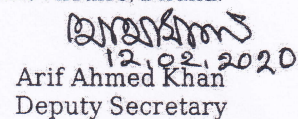 12.02.2020
Arif Ahmed Khan
Deputy Secretary